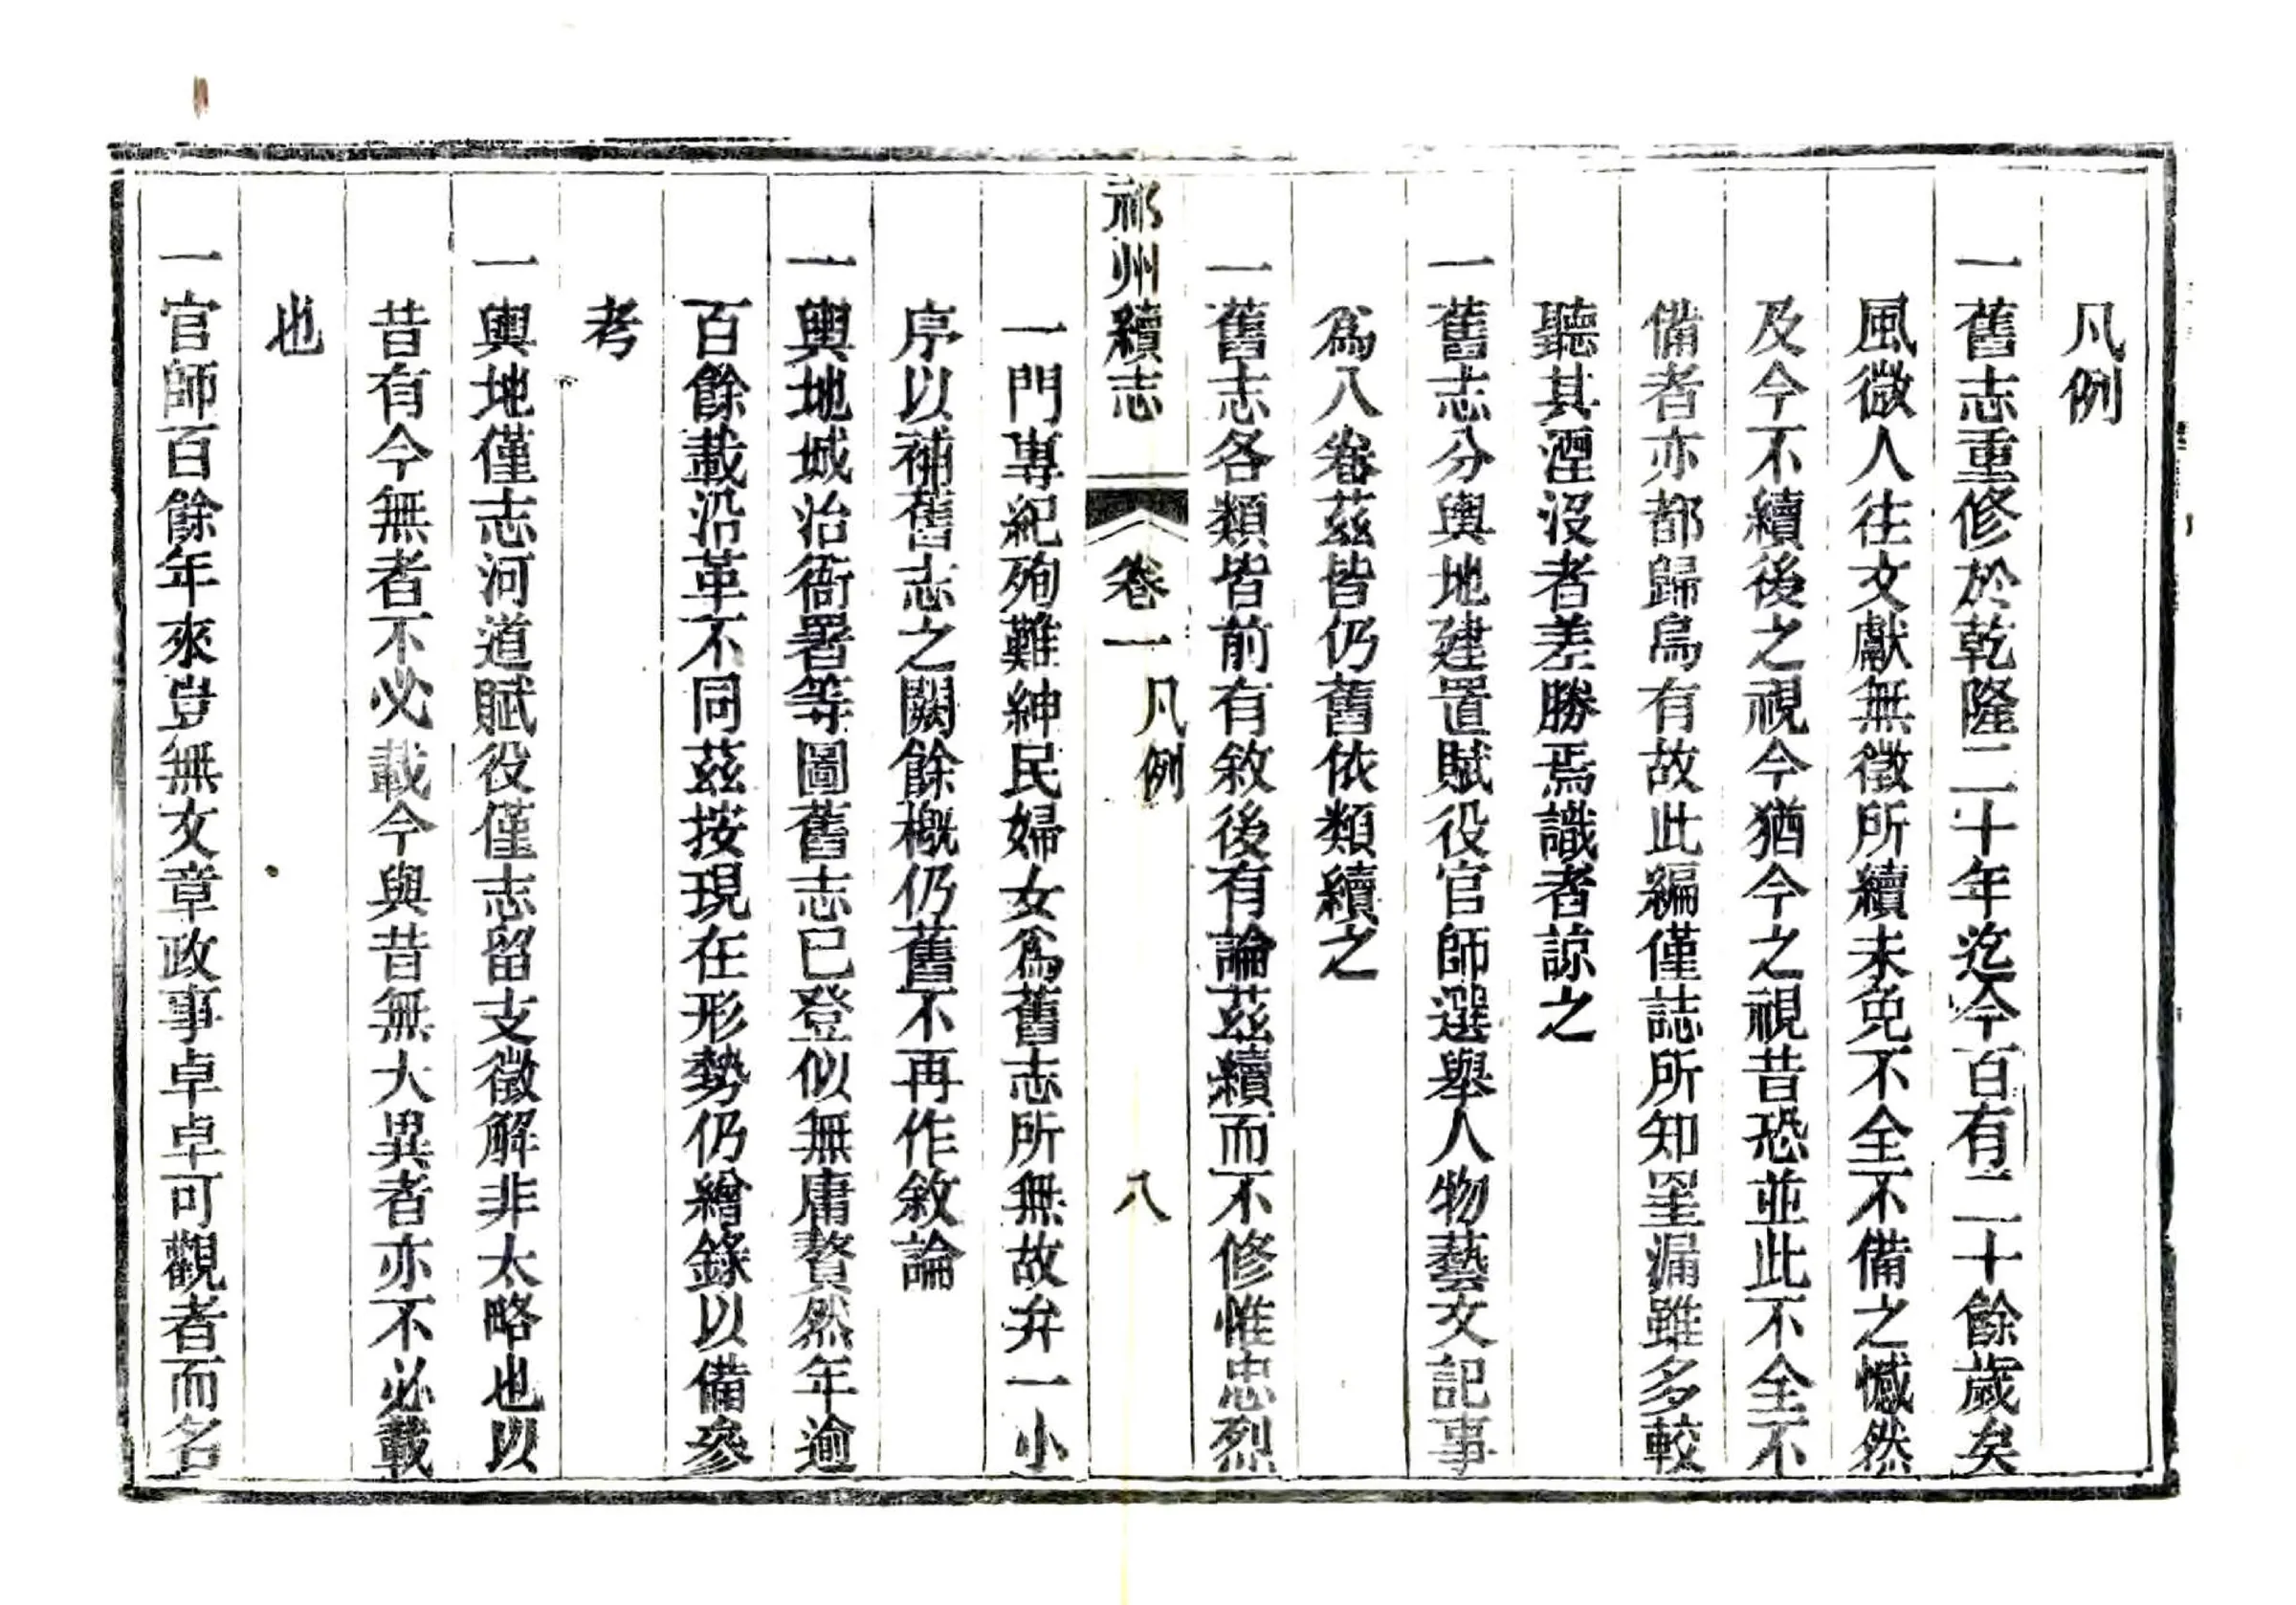 凡例
一舊志重修於乾隆二十年迄今百有二十餘歲矣
風微人往文獻無徵所續未免不全不備之憾然
及今不續後之視今猶今之視昔恐並此不全不
備者亦都歸烏有故此編僅誌所知罣漏雖多較
聽其湮沒者差勝焉識者諒之
一舊志分輿地建置賦役官師選舉人物藝文記事
爲八卷茲皆仍舊依類續之
一舊志各類皆前有敘後有論茲續而不修惟忠烈
祁州續志 卷一 凡例 八
一門專紀殉難紳民婦女爲舊志所無故弁一小
序以補舊志之闕餘概仍舊不再作敘論
一輿地城治衙署等圖舊志已登似無庸贅然年逾
百餘載沿革不同茲按現在形勢仍繪錄以備參
考
一輿地僅志河道賦役僅志留支徵解非太略也以
昔有今無者不必載今與昔無大異者亦不必載
也
一官師百餘年來豈無文章政事卓卓可觀者而名